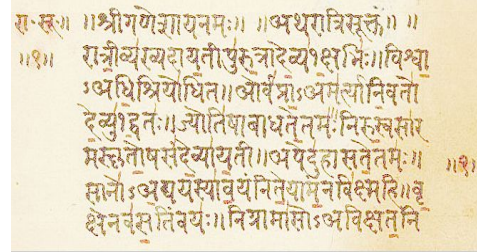 रा॰सू॰ ॥ ॥श्रीगणेशायनमः॥ ॥अथरात्रिसूक्त॥ ॥
॥१॥ रात्रीव्यख्यदायतीपुरुत्रादेव्य१क्षभिः॥विश्वा
ऽअधिश्रियोधित॥ओर्वप्राऽअमर्त्यानिवतो
देव्यु१द्वतः॥ज्योतिषाबाधतेतमः॥निरुस्वसार
मस्कृतोषसंदेव्यायती॥अपेदुहासतेतमः॥ ॥१॥
सानोऽअद्ययस्यावयंनितेयामन्नविक्ष्महि॥वृ
क्षेनवसतिंवयः॥निग्रामासोऽअविक्षतनि